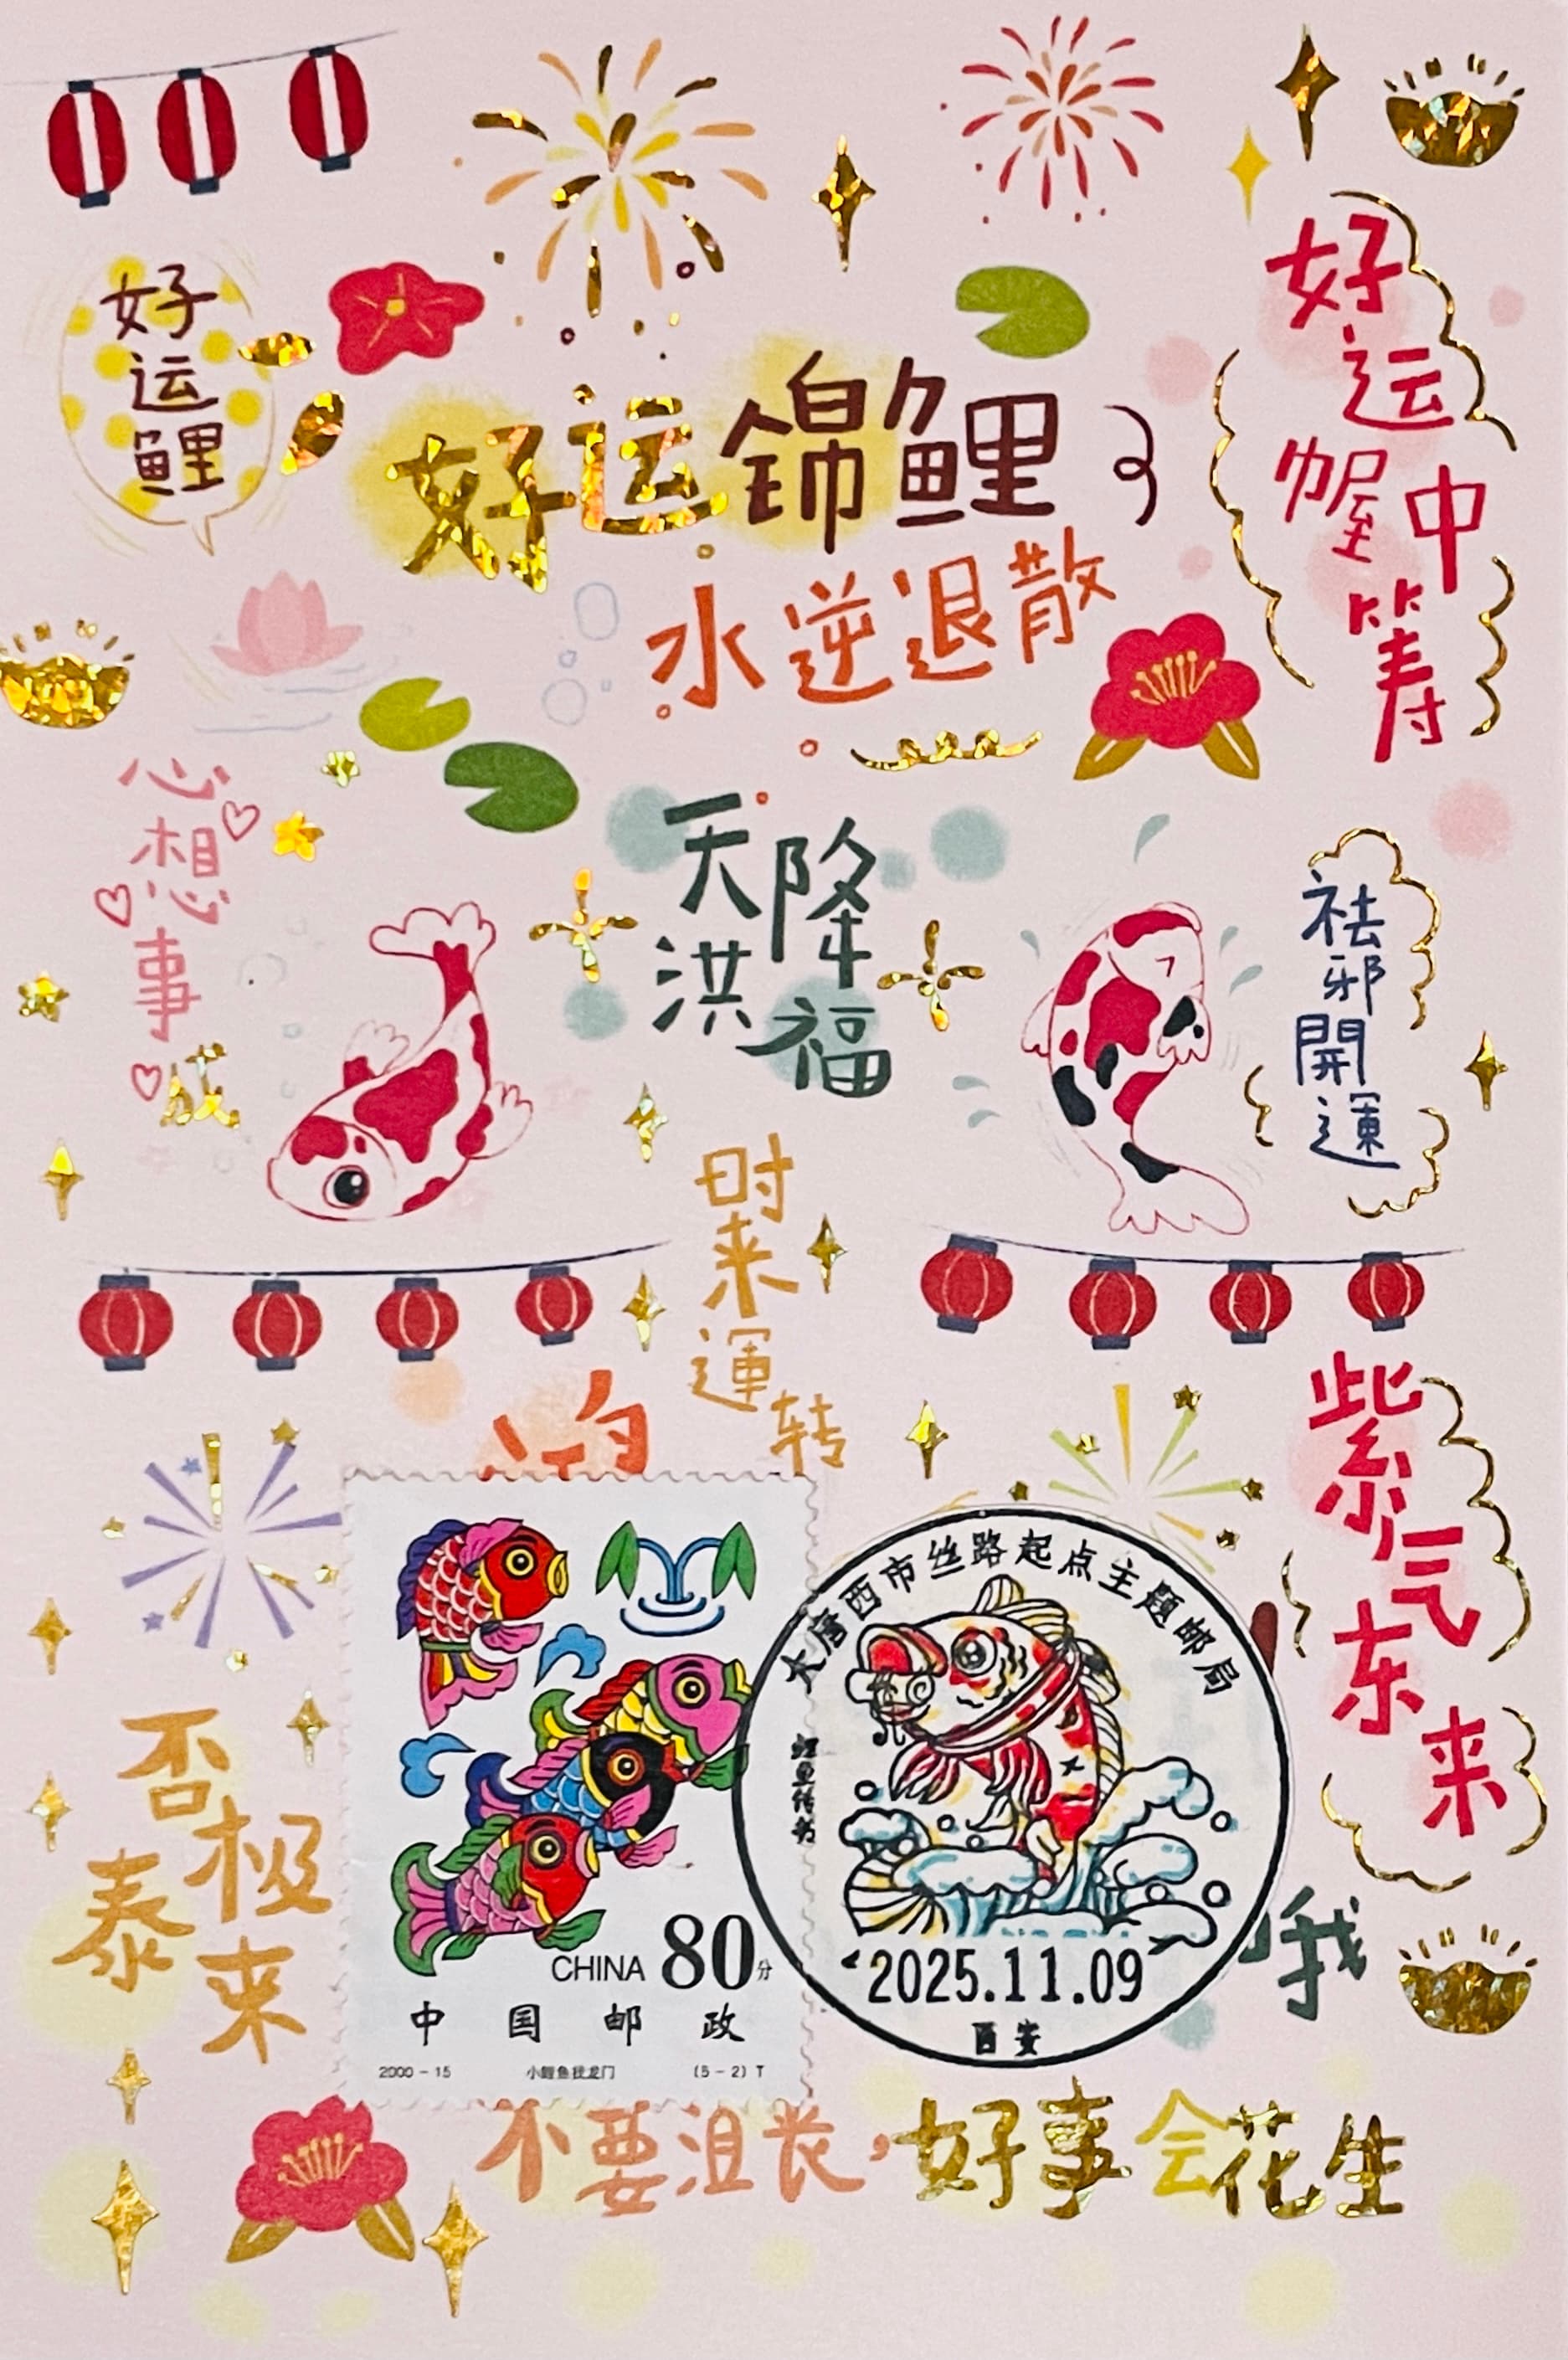 好运鲤
好运锦鲤
好运
幄中
筹
水逆退散
心想事成
天降
洪福
祛邪開運
时来運转
紫气东来
否极
泰来
大唐西市丝路起点主题邮局
鲤鱼传书
2025.11.09
西安
CHINA 80分
中国邮政
2000-15 小鲤鱼跳龙门 (5-2)T
哦
不要沮丧,好事会花生